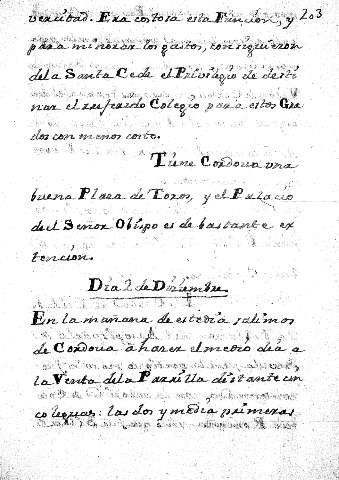 203
versidad. Era costosa esta Funcion, y
para minorar los gastos, consiguieron
de la Santa Cede el Privilegio de desti
nar el referido Colegio para estos Gra
dos con menos costo.
Tiene Cordova una
buena Plaza de Toros, y el Palacio
del Señor Obispo es de bastante ex
tencion.
Dia 2 de Diziembre
En la mañana de este dia salimos
de Cordova à hazer el medio dia a
la Venta de la Parrilla distante cin
co leguas: las dos y media primeras